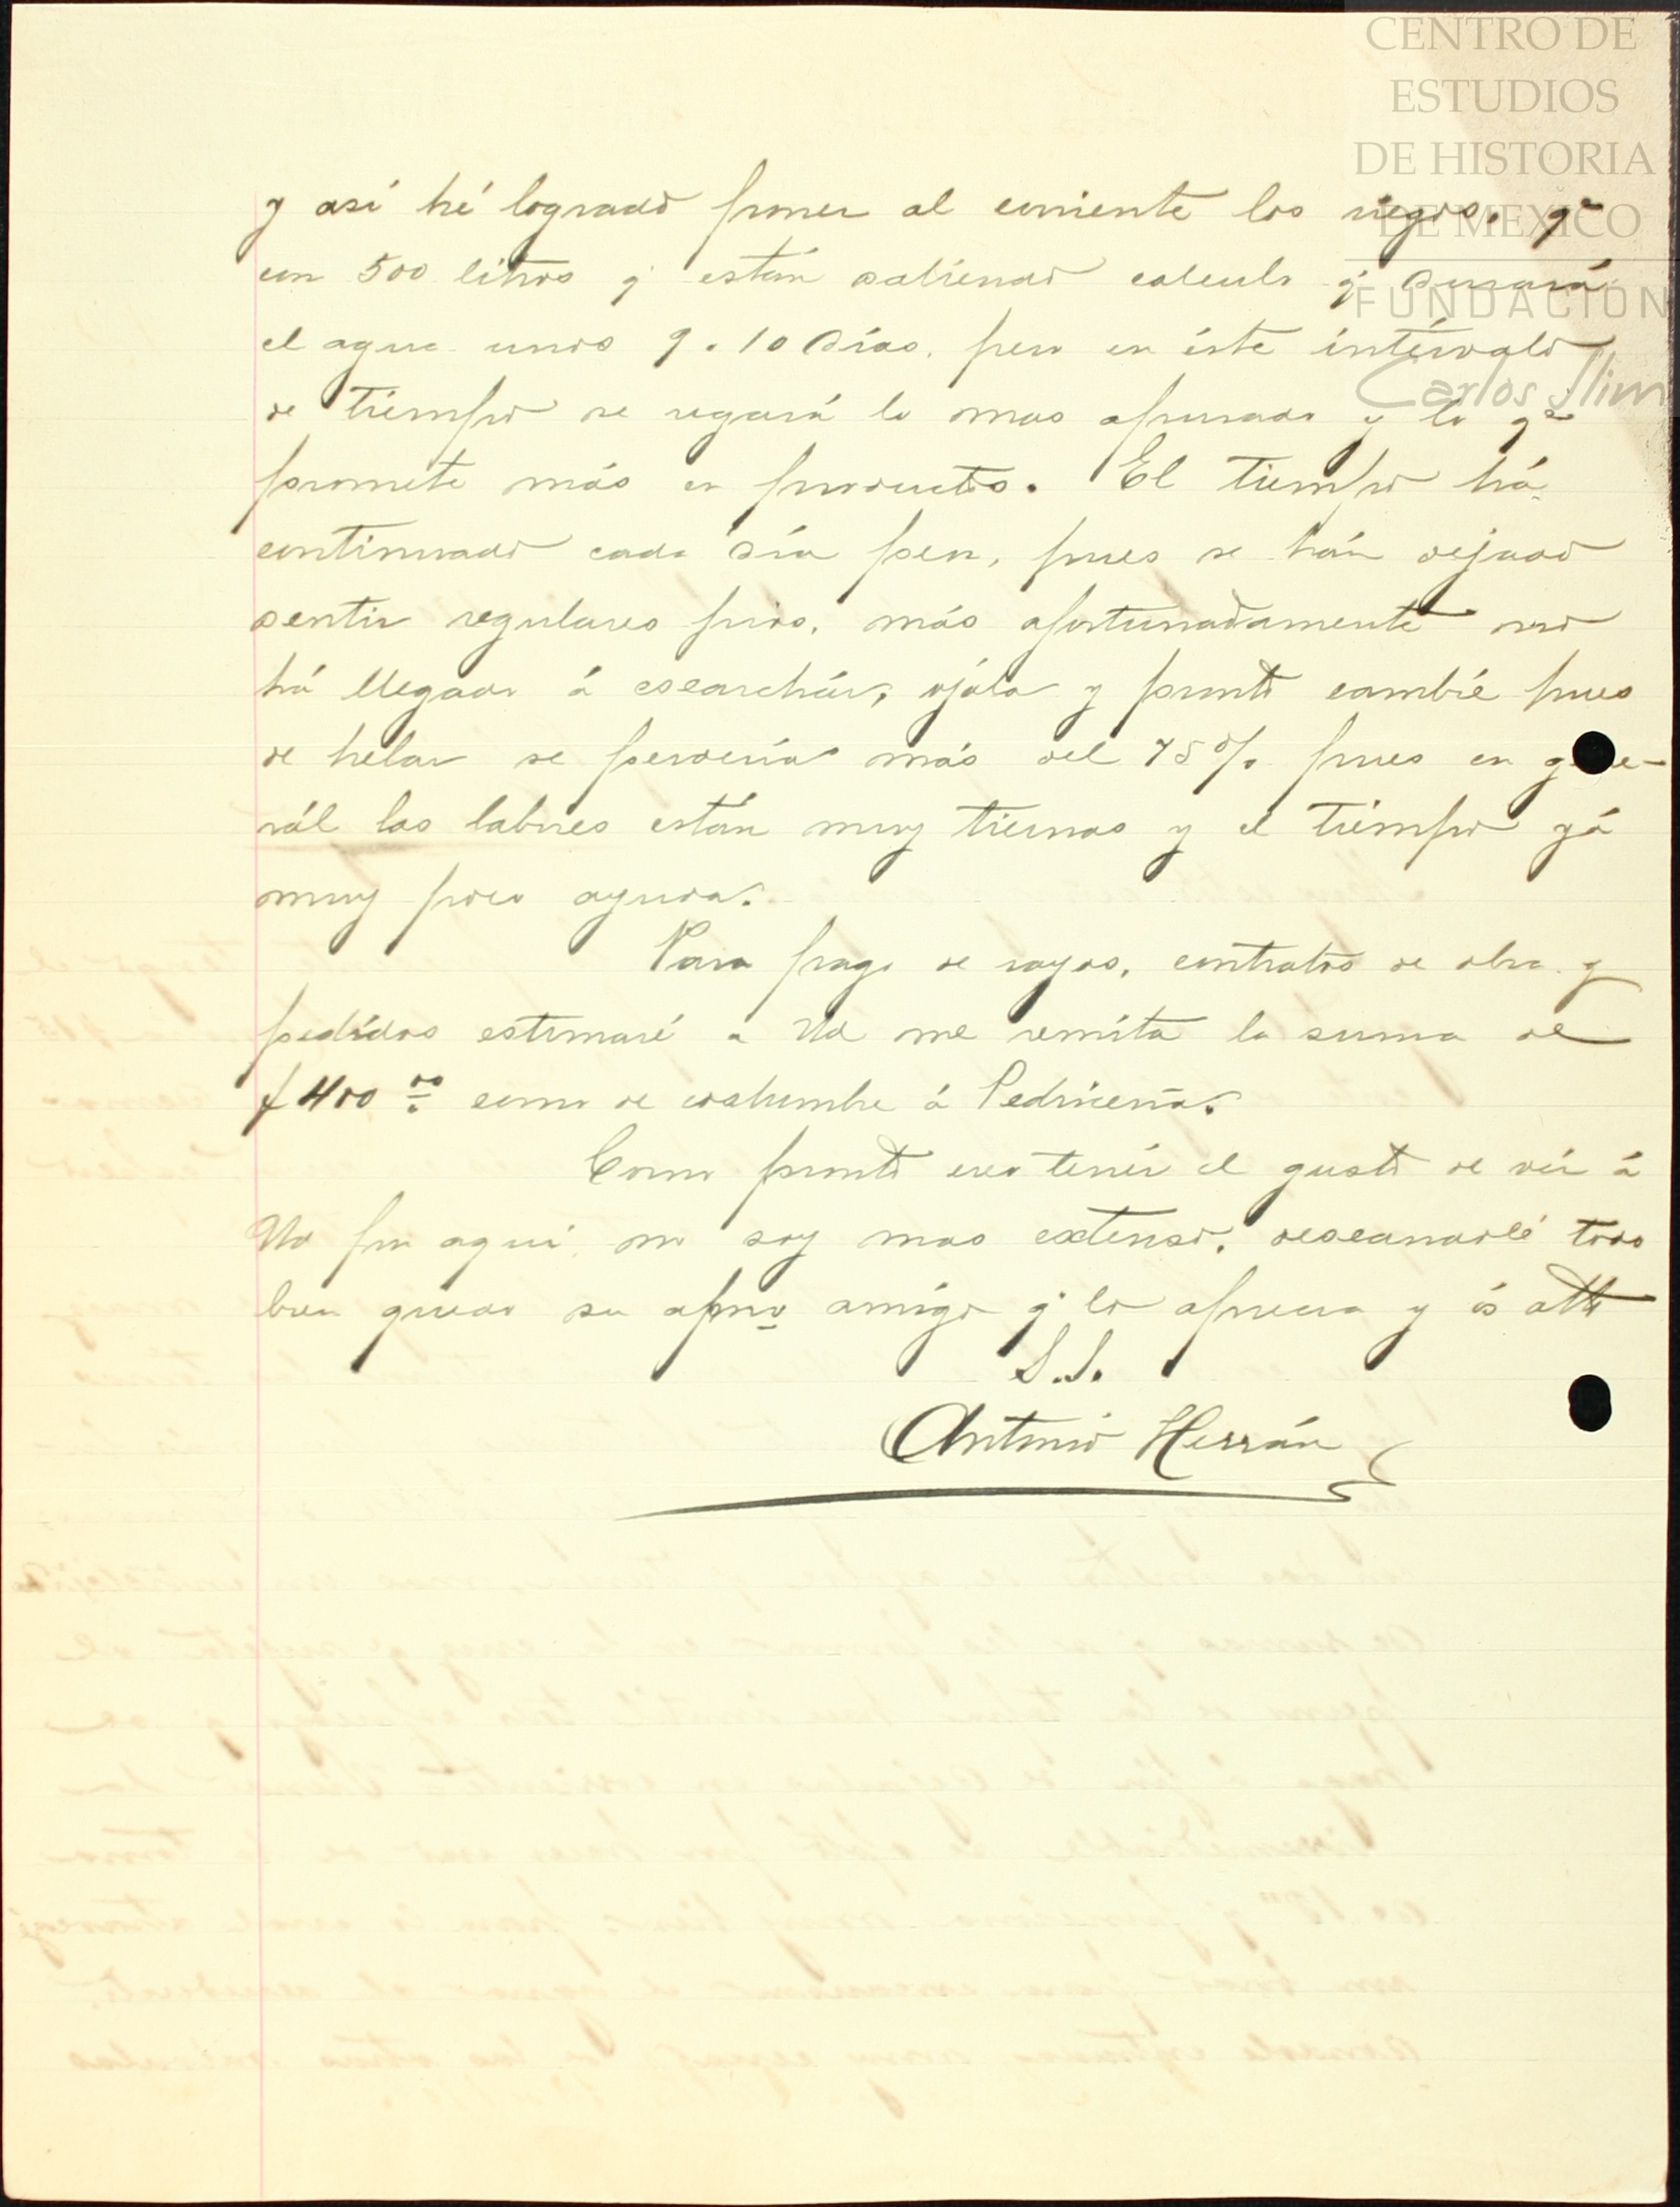 CENTRO DE
ESTUDIOS
DE HISTORIA
DE MEXICO
FUNDACION
Carlos Slim
y así hé logrado poner al corriente los riegos. qe
con 500 litros q' están saliendo calculo q' durará
el agua unos 9 . 10 Días, pero en éste intérvalo
de tiémpo se regará lo mas apurado y lo qe
promete más en productos. El tiempo há
continuado cada Día peor, pues se hán dejado
sentir regulares frios, más afortunadamente no
há llegado á escarchár, ojala y pronto cambié pues
de helar se perdería más del 75% pues en gene-
rál las labores están muy tiernas y el tiémpo yá
muy poco ayuda.
Para pago de rayas, contratos de obra y
pedídos estimaré a Ud me remíta la suma de
$400 oo como de costumbre á Pedriceña.
Como pronto creo tenér el gusto de vér á
Ud por aquí, no soy mas extenso, deseandolé todo
bien quedo su afmo amígo q' lo aprecia y és atto
S.S.
Antonio Herrán